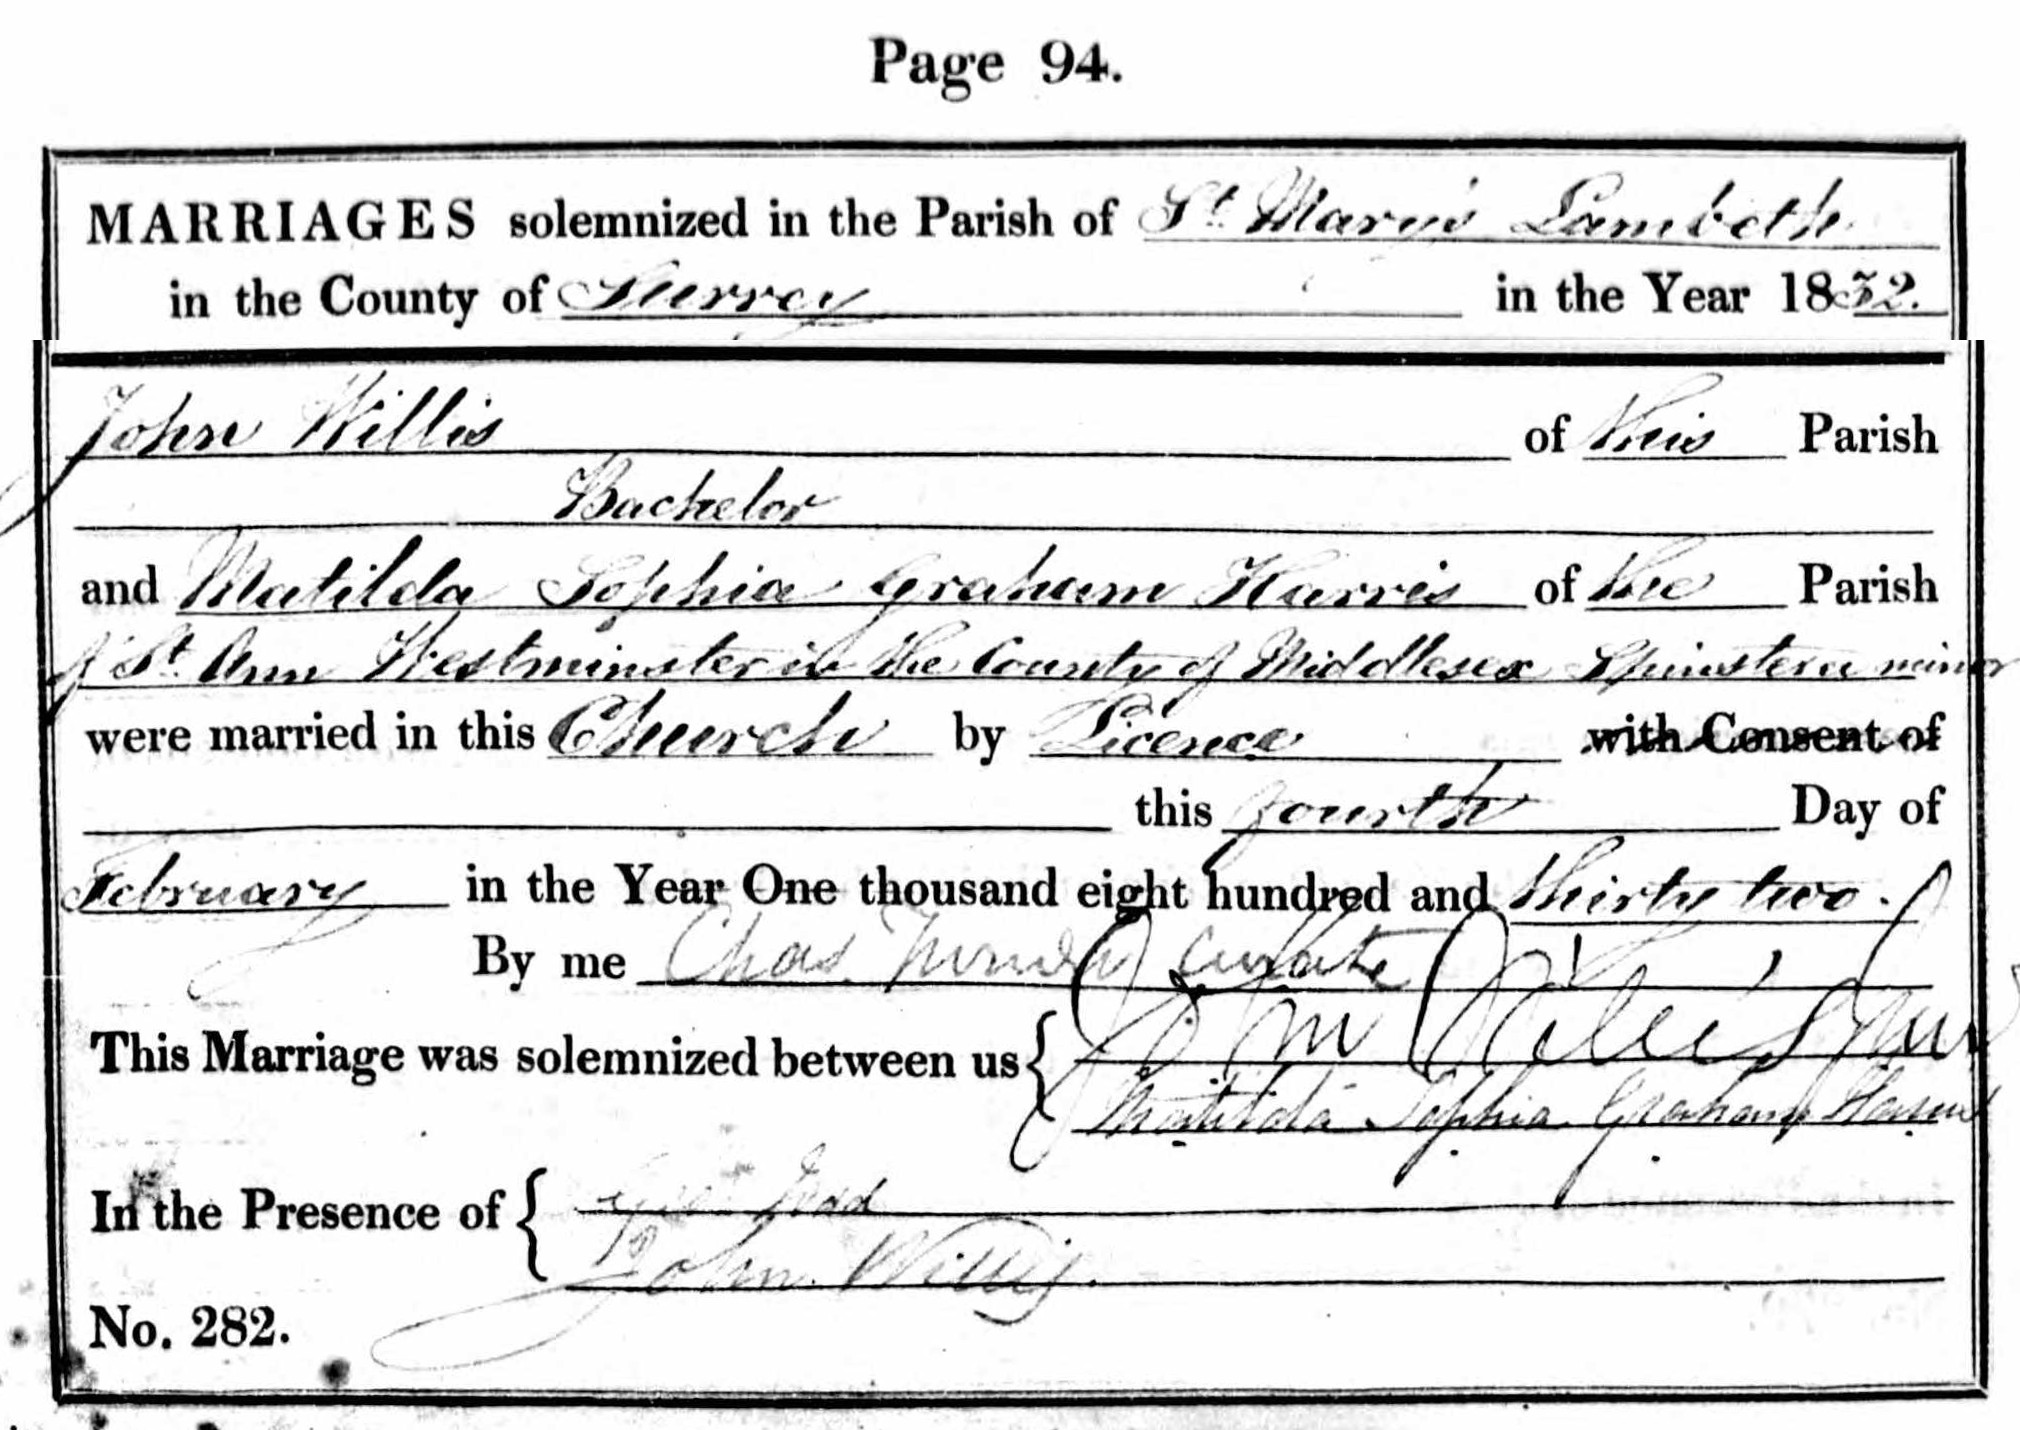 Page 94.
MARRIAGES solemnized in the Parish of St. Mary's Lambeth
in the County of Surrey in the Year 1832.
John Willis of this Parish
Bachelor
and Matilda Sophia Graham Harris of the Parish
of St. Ann Westminster in the County of Middlesex Spinster a minor
were married in this Church by Licence with Consent of
this fourth Day of
February in the Year One thousand eight hundred and thirty two.
By me Chas. Curate
This Marriage was solemnized between us { John Willis Junr
Matilda Sophia Graham Harris
In the Presence of {
John Willis.
No. 282.